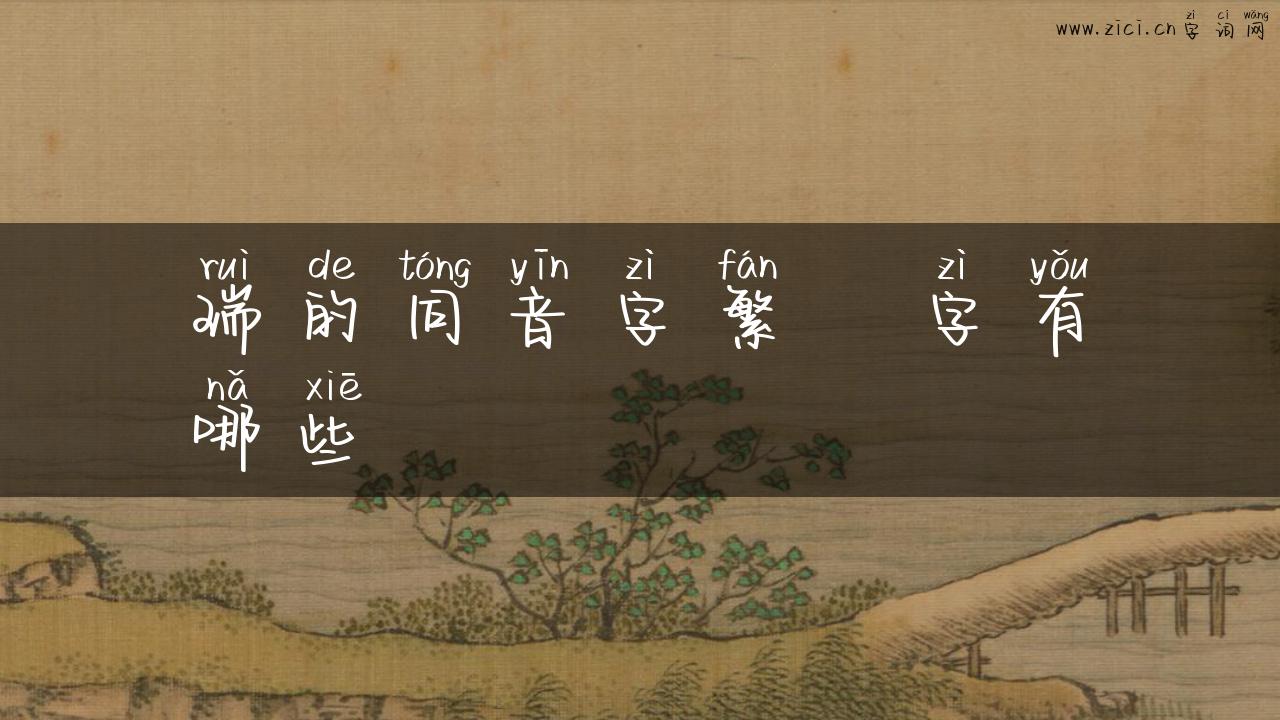 www.zici.cn 字词网
zì cí wǎng
ruì de tóng yīn zì fán zì yǒu
瑞的同音字繁 字有
nǎ xiē
哪些